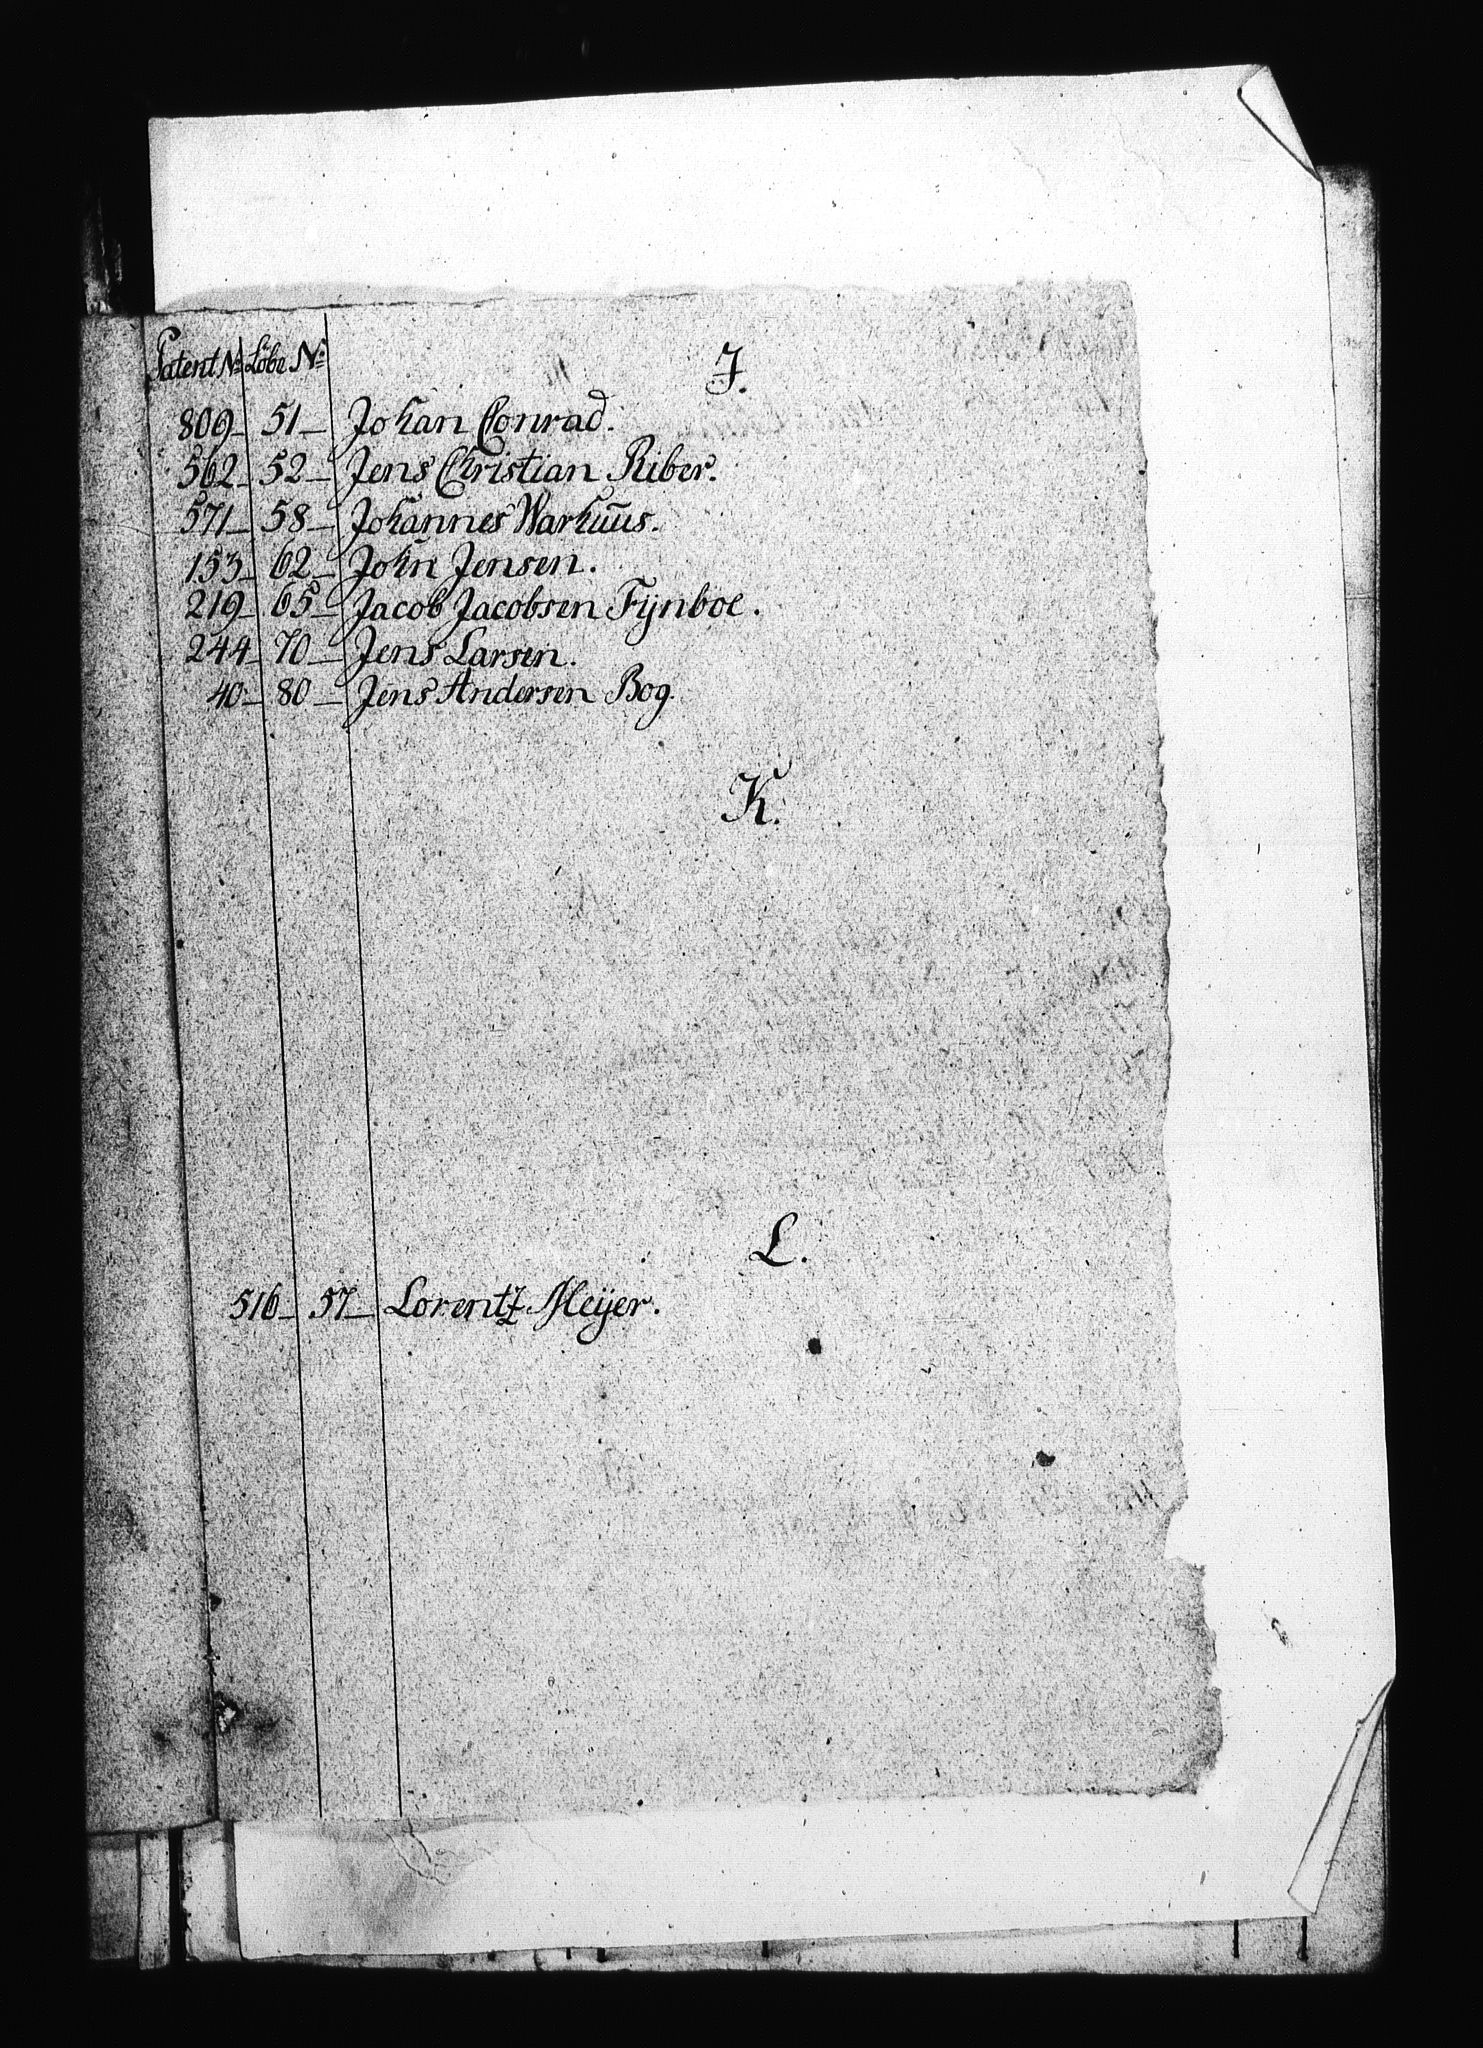 Patent No Löbe No
J.
809 51 Johan Conrad.
562 52 Jens Christian Riber.
571 58 Johannes Warhuus.
153 62 John Jensen.
219 65 Jacob Jacobsen Fÿnboe.
244 70 Jens Larsen.
40 80 Jens Andersen Bog.
K.
L.
516 57 Lorentz Meÿer.